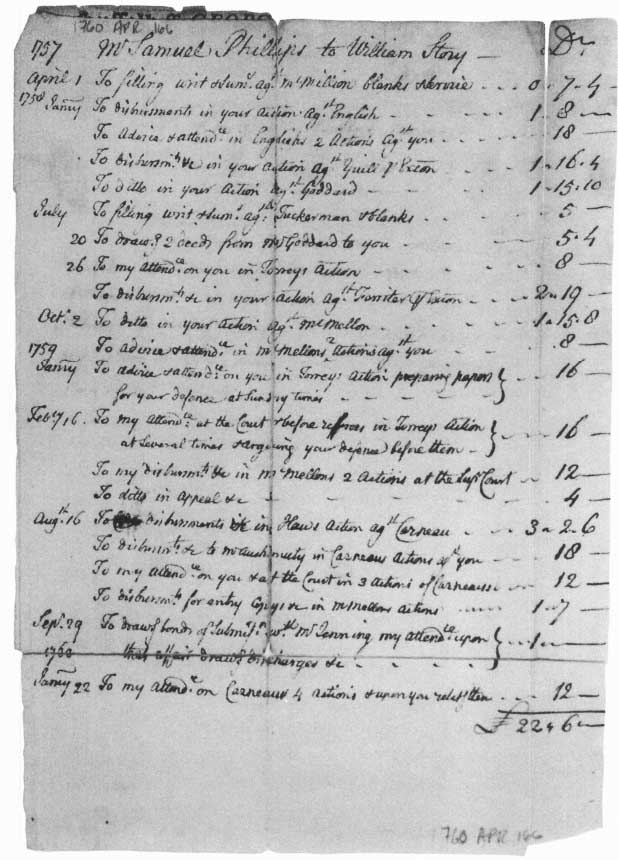 760 APR 166
1757 Mr Samuel Phillips to William Story — Dr
April 1 To filling writ & Sums agt McMillion blanks & Service - - 0 „ 7 „ 4
1758 Janry To disbursments in your Action Agst English - - 1 „ 8 —
To Advice & attendce in English's 2 Actions Agst you - - 18 —
To disbursmts &c in your Action agst &c - - 1 „ 16 „ 4
To ditto in your Action Agst Goddard - - 1 „ 15 „ 10
July To filling writ & Sums agst Tuckerman & blanks - - 5 —
20 To drawg 2 deeds from Mr Goddard to you - - 5 „ 4
26 To my Attendce on you in Torreys Action - - 8 —
To disbursmts &c in your Action agst Forrister - - 2 „ 19 —
Octr 2 To ditto in your Action agst McMellon - - 1 „ 15 „ 8
To advice & attendce in McMellons 2 Actions Agst you - - 8 —
1759
Janry To advice & attendce on you in Torreys Action prepareing papers
for your defence at Sundry times } - - 16 —
Febry 16 To my Attendce at the Court & before reffrees in Torreys Action
at Several times & argueing your defence before them } - - 16 —
To my disbursmts &c in McMellons 2 Actions at the Supr Court - 12 —
To ditto in Appeal &c - - 4 —
Augst 16 To disbursments &c in Haws Action agst Carneau - - 3 „ 2 „ 6
To disbursmts &c to Mr Auchmuty in Carneaus Actions agst you - - 18 —
To my Attendce on you & at the Court in 3 Actions of Carneaus - - 12 —
To disbursmts for entry Copys &c in McMellons Actions - - 1 „ 7 —
Sepr 29 To drawg bonds of Submissn wth Mr Jenning my Attendce upon
1760 that affair drawg discharges &c } - - 1 „ —
Janry 22 To my Attendce on Carneaus 4 Actions & upon you relatg to them - - 12 —
£ 22 „ 6 —
760 APR 166